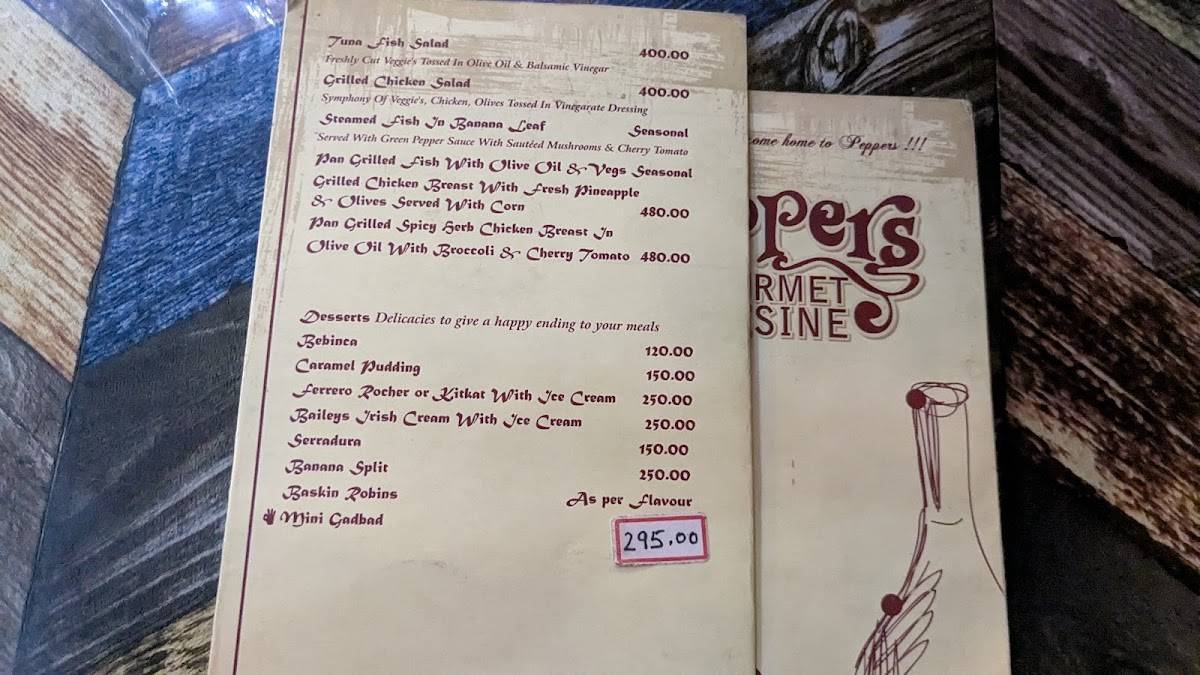 Tuna Fish Salad 400.00
Freshly Cut Veggie's Tossed In Olive Oil & Balsamic Vinegar
Grilled Chicken Salad 400.00
Symphony Of Veggie's, Chicken, Olives Tossed In Vinegarate Dressing
Steamed Fish In Banana Leaf Seasonal
Served With Green Pepper Sauce With Sautéed Mushrooms & Cherry Tomato
Pan Grilled Fish With Olive Oil & Vegs Seasonal
Grilled Chicken Breast With Fresh Pineapple
& Olives Served With Corn 480.00
Pan Grilled Spicy Herb Chicken Breast In
Olive Oil With Broccoli & Cherry Tomato 480.00
Desserts Delicacies to give a happy ending to your meals
Bebinca 120.00
Caramel Pudding 150.00
Ferrero Rocher or Kitkat With Ice Cream 250.00
Baileys Irish Cream With Ice Cream 250.00
Serradura 150.00
Banana Split 250.00
Baskin Robins As per Flavour
Mini Gadbad 295.00
ome home to Peppers !!!
ppers
RMET
SINE